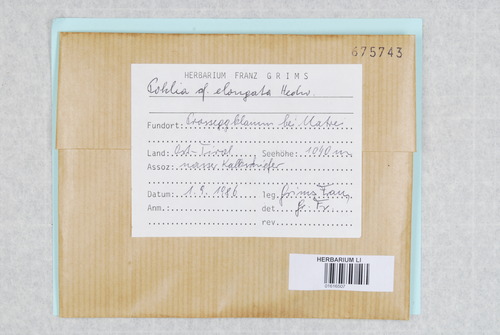 675743
HERBARIUM FRANZ GRIMS
Pohlia cf. elongata Hedw.
Fundort: Prosseggklamm bei Matrei
Land: Ost-Tirol Seehöhe: 1090 m
Assoz: nasse Kalkschiefer
Datum: 1.9.1986 leg. Grims Franz
Anm.: det. Gr. Fr.
rev.
HERBARIUM LI